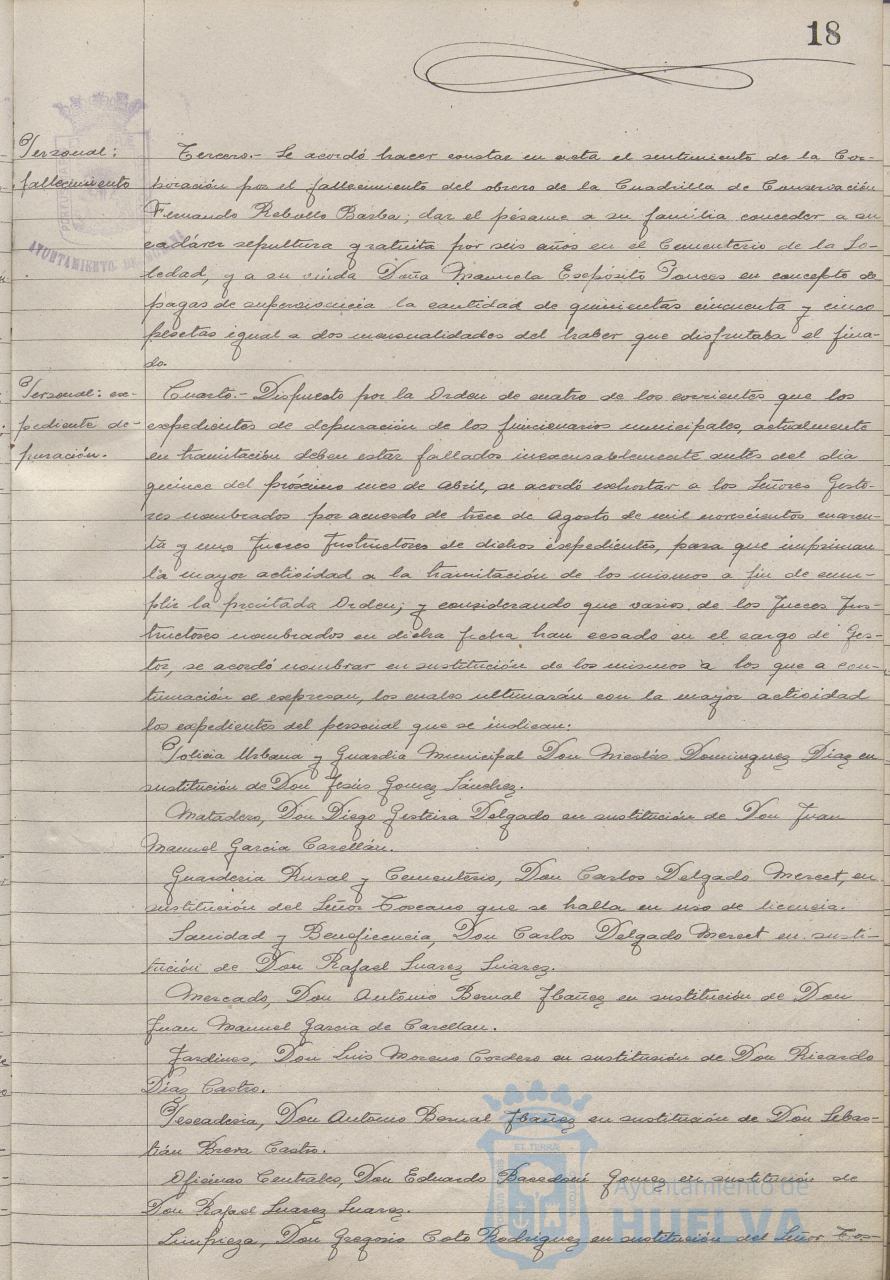 18
Personal:
fallecimiento
Tercero.- Se acordó hacer constar en acta el sentimiento de la Cor-
poración por el fallecimiento del obrero de la Cuadrilla de Conservación
Fernando Rebollo Barba; dar el pésame a su familia conceder a su
cadáver sepultura gratuita por seis años en el Cementerio de la So-
ledad, y a su viuda Doña Manuela Expósito Ponces en concepto de
pagas de supervivencia la cantidad de quinientas cincuenta y cinco
pesetas igual a dos mensualidades del haber que disfrutaba el fina-
do.
Personal: ex-
pediente de-
puración.
Cuarto.- Dispuesto por la Orden de cuatro de los corrientes que los
expedientes de depuración de los funcionarios municipales, actualmente
en tramitación deben estar fallados inexcusablemente antes del dia
quince del próximo mes de Abril, se acordó exhortar a los Señores Gesto-
res nombrados por acuerdo de trece de Agosto de mil novecientos cuaren-
ta y uno Jueces Instructores de dichos expedientes, para que impriman
la mayor actividad a la tramitación de los mismos a fin de cum-
plir la precitada Orden; y considerando que varios de los Jueces Ins-
tructores nombrados en dicha fecha han cesado en el cargo de Ges-
tor, se acordó nombrar en sustitución de los mismos a los que a con-
tinuación se expresan, los cuales ultimarán con la mayor actividad
los expedientes del personal que se indican:
Policia Urbana y Guardia Municipal Don Nicolás Dominguez Díaz en
sustitución de Don Jesús Gomez Sánchez.
Matadero, Don Diego Gesteira Delgado en sustitución de Don Juan
Manuel Garcia Carellán.
Guarderia Rural y Cementerio, Don Carlos Delgado Mercet, en
sustitución del Señor Toscano que se halla en uso de licencia.
Sanidad y Beneficencia, Don Carlos Delgado Mercet en susti-
tución de Don Rafael Suarez Suarez.
Mercado, Don António Bernal Ibañez en sustitución de Don
Juan Manuel Garcia de Carellan.
Jardines, Don Luis Moreno Cordero en sustitusión de Don Ricardo
Díaz Castro.
Pescaderia, Don António Bernal Ibañez en sustitución de Don Sebas-
tián Breva Castro.
Oficinas Centrales, Don Eduardo Gomez en sustitución de
Don Rafael Suarez Suarez.
Limpieza, Don Gregorio Coto Rodriguez en sustitución del Señor Tos-
AYUNTAMIENTO DE HUELVA
Ayuntamiento de
HUELVA